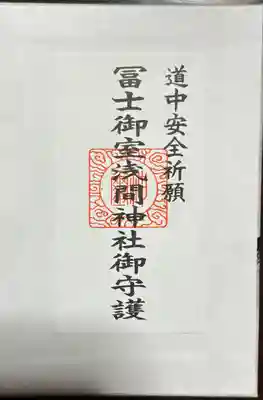 道中安全祈願
冨士御室浅間神社御守護